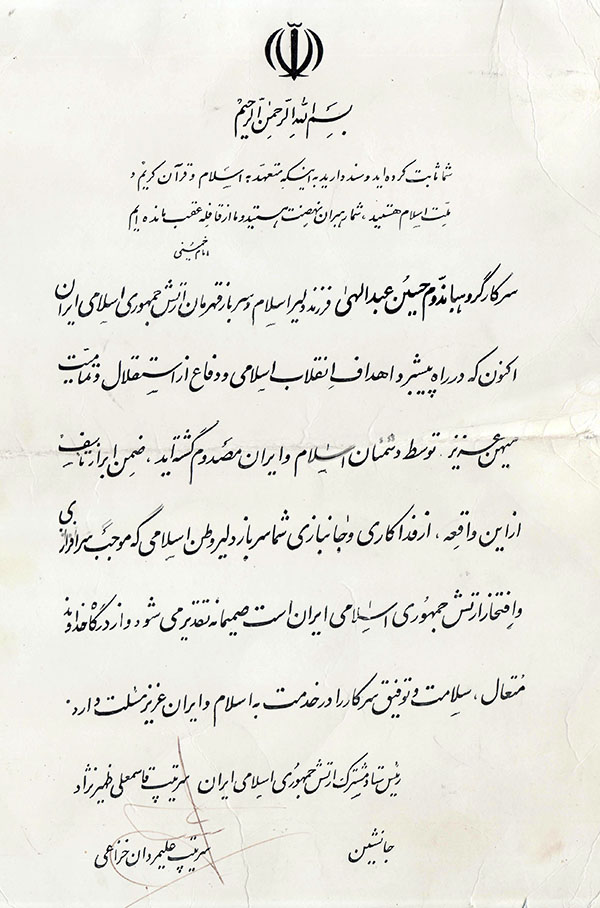 بسم الله الرحمن الرحیم
شما ثابت کرده‌اید و سند دارید به اینکه متعهد به اسلام و قرآن کریم و
ملت اسلام هستید، شما رهبران نهضت هستید و ما از قافله عقب مانده ایم
امام خمینی
سرکار گروهبان دوم حسین عبدالهی فرزند دلیر اسلام و سرباز قهرمان ارتش جمهوری اسلامی ایران
اکنون که در راه پیشبرد اهداف انقلاب اسلامی و دفاع از استقلال و تمامیت
میهن عزیز توسط دشمنان اسلام و ایران مصدوم گشته‌اید، ضمن ابراز تاسف
از این واقعه، از فداکاری و جانبازی شما سرباز دلیر وطن اسلامی که موجب سرافرازی
و افتخار ارتش جمهوری اسلامی ایران است صمیمانه تقدیر می شود و از درگاه خداوند
متعال، سلامت و توفیق سرکار را در خدمت به اسلام و ایران عزیز مسئلت دارد.
رئیس ستاد مشترک ارتش جمهوری اسلامی ایران سرتیپ قاسمعلی ظهیرنژاد
جانشین سرتیپ علیمردان خزاعی